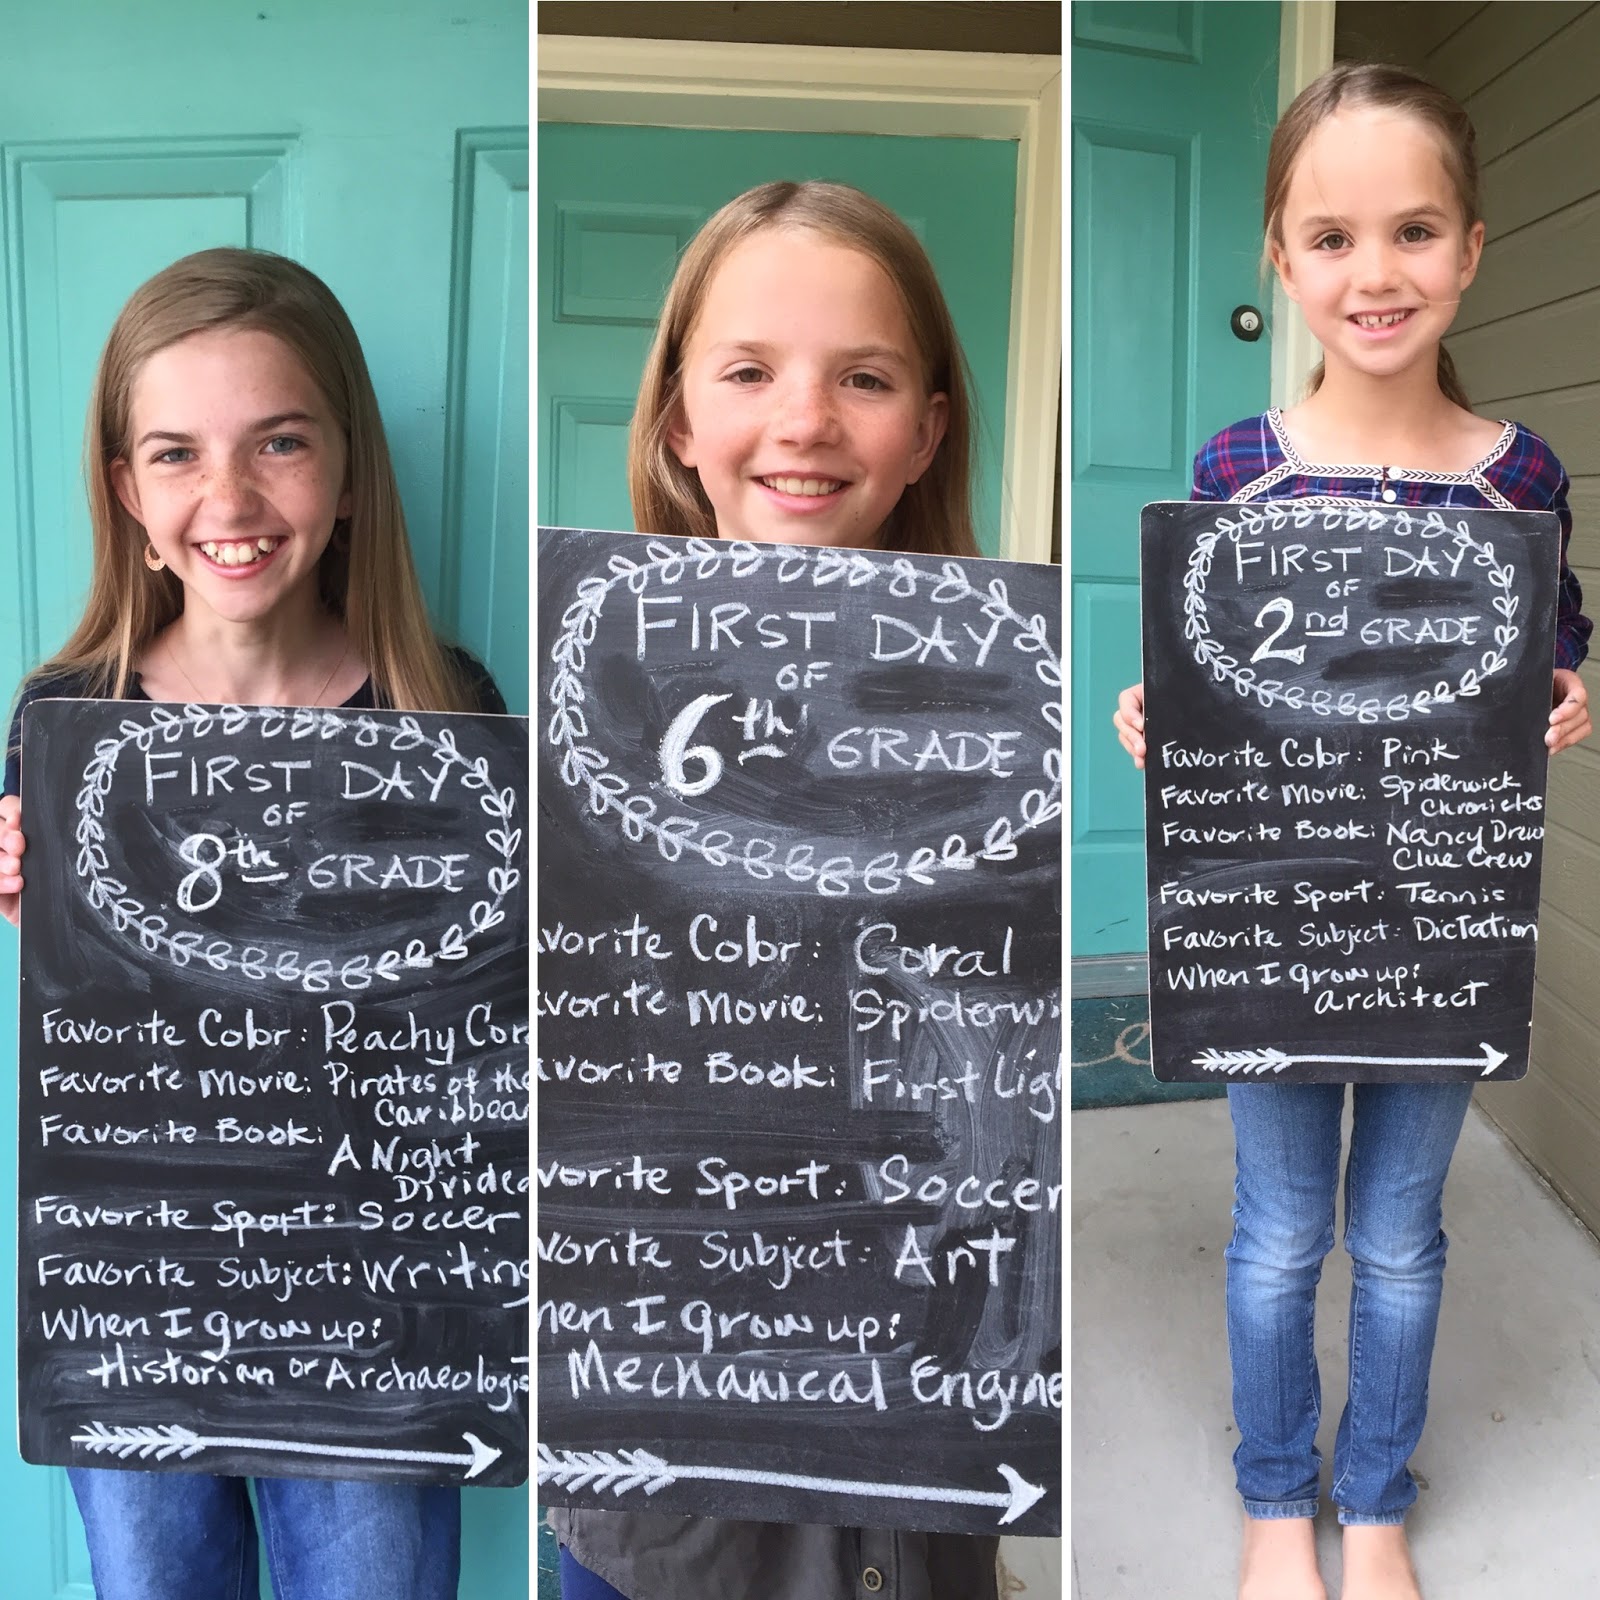 FIRST DAY
OF
8th GRADE
Favorite Color: Peachy Cor
Favorite Movie: Pirates of the
Caribbean
Favorite Book:
A Night
Divided
Favorite Sport: Soccer
Favorite Subject: Writing
When I grow up:
Historian or Archaeologis
FIRST DAY
OF
6th GRADE
vorite Color: Coral
vorite Movie: Spiderwi
avorite Book: First Lig
vorite Sport: Soccer
vorite Subject: Art
hen I grow up:
Mechanical Engine
FIRST DAY
OF
2nd GRADE
Favorite Color: Pink
Favorite Movie: Spiderwick
Chronicles
Favorite Book: Nancy Drew
Clue Crew
Favorite Sport: Tennis
Favorite Subject: Dictation
When I grow up:
architect